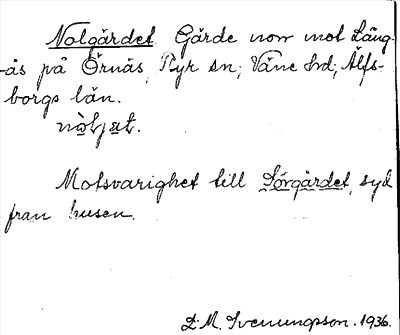 Nolgärdet. Gärde norr mot Lång-
-ås på Örnäs, Ryr sn; Väne hd; Älfs-
borgs län.
Motsvarighet till Sörgärdet, syd
från husen.
D. M. Svenungsson. 1936.